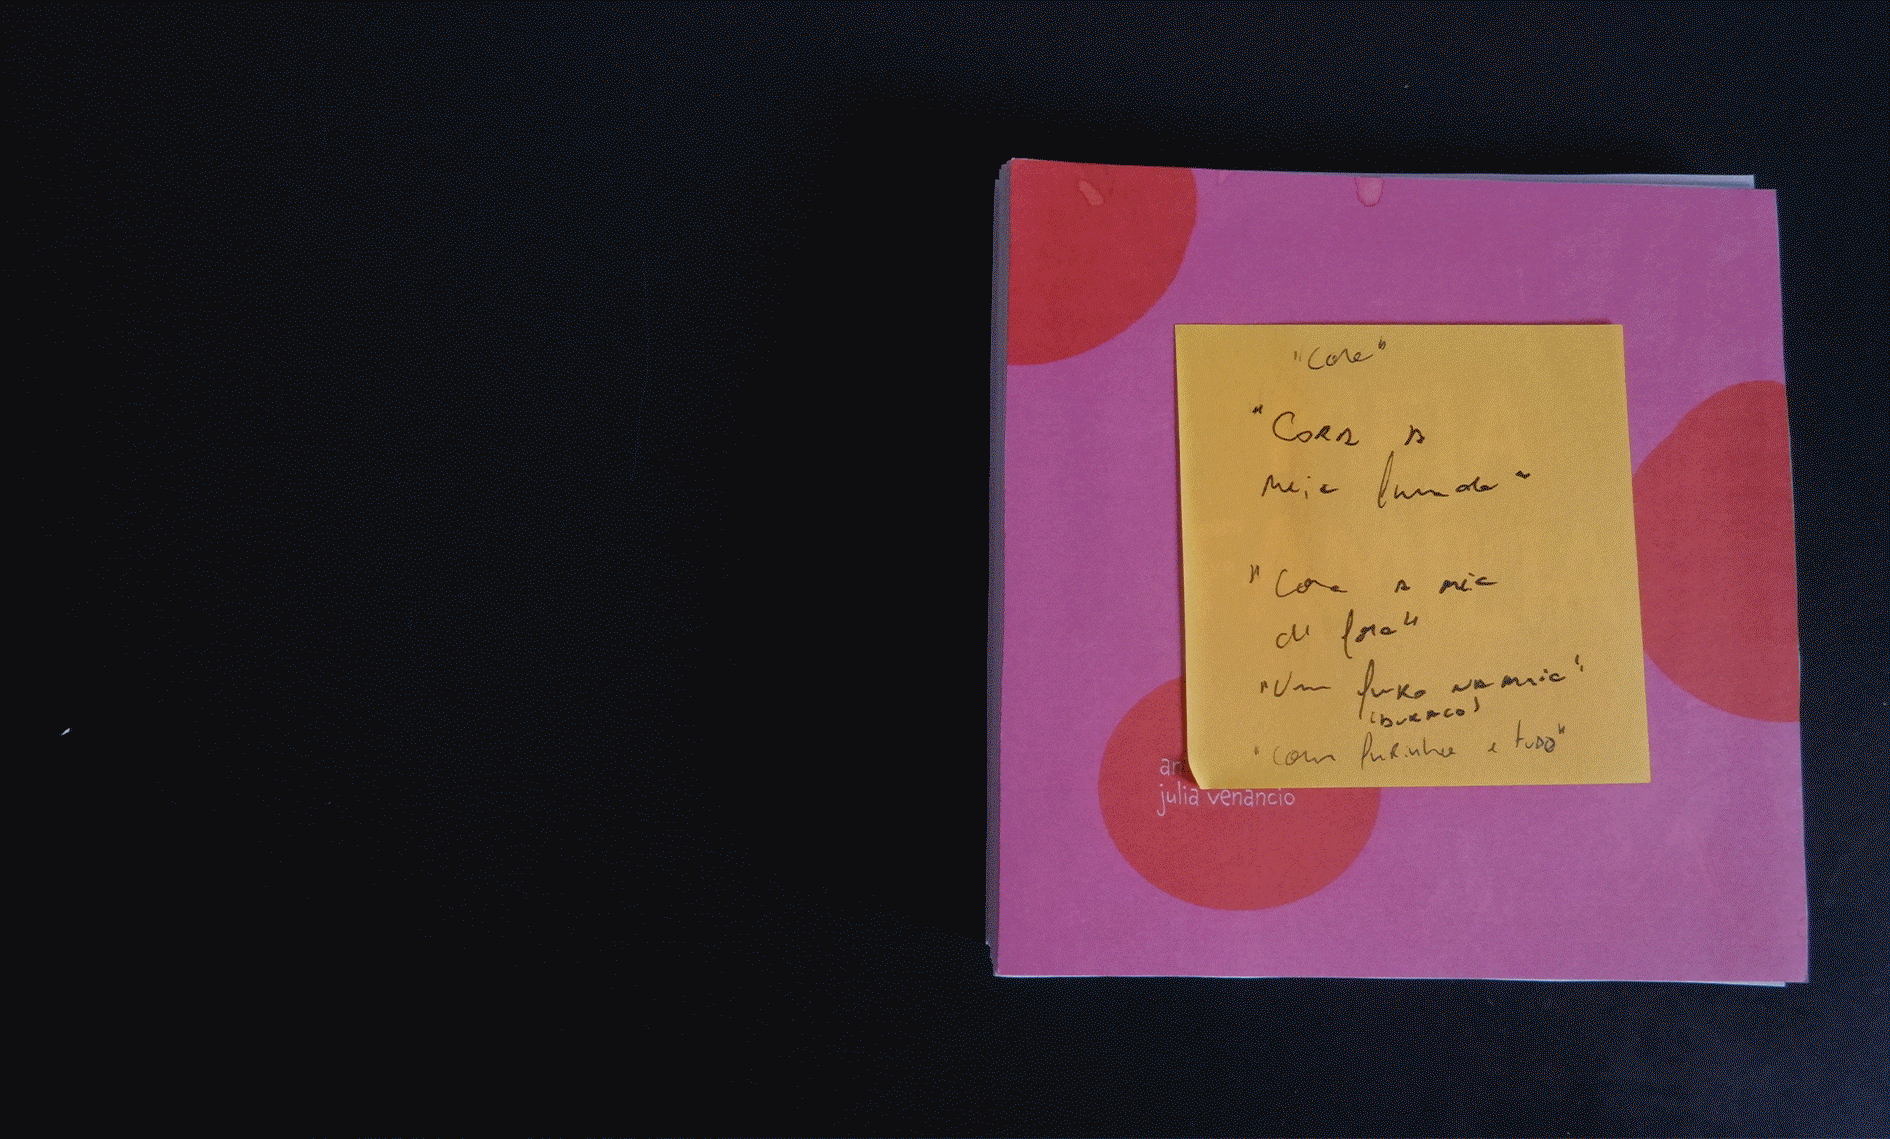 "Cora"
"CORA A
meia furada"
"Cora a meia
de fora"
"Um furo na meia"
(BURACO)
"com furinho e tudo"
julia venancio